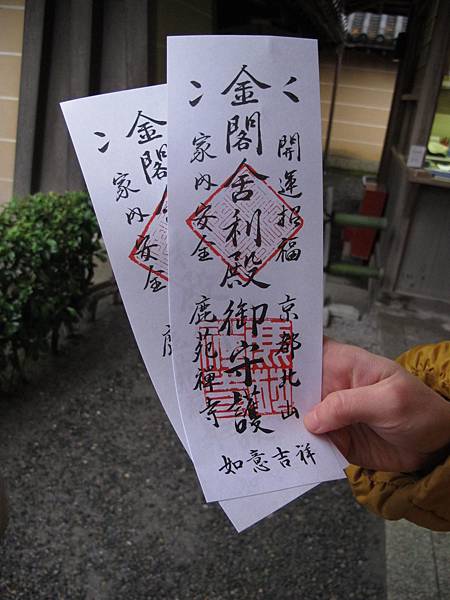 開運招福 京都北山
金閣舍利殿御守護
家内安全 鹿苑禅寺
如意吉祥
金閣
家内安全